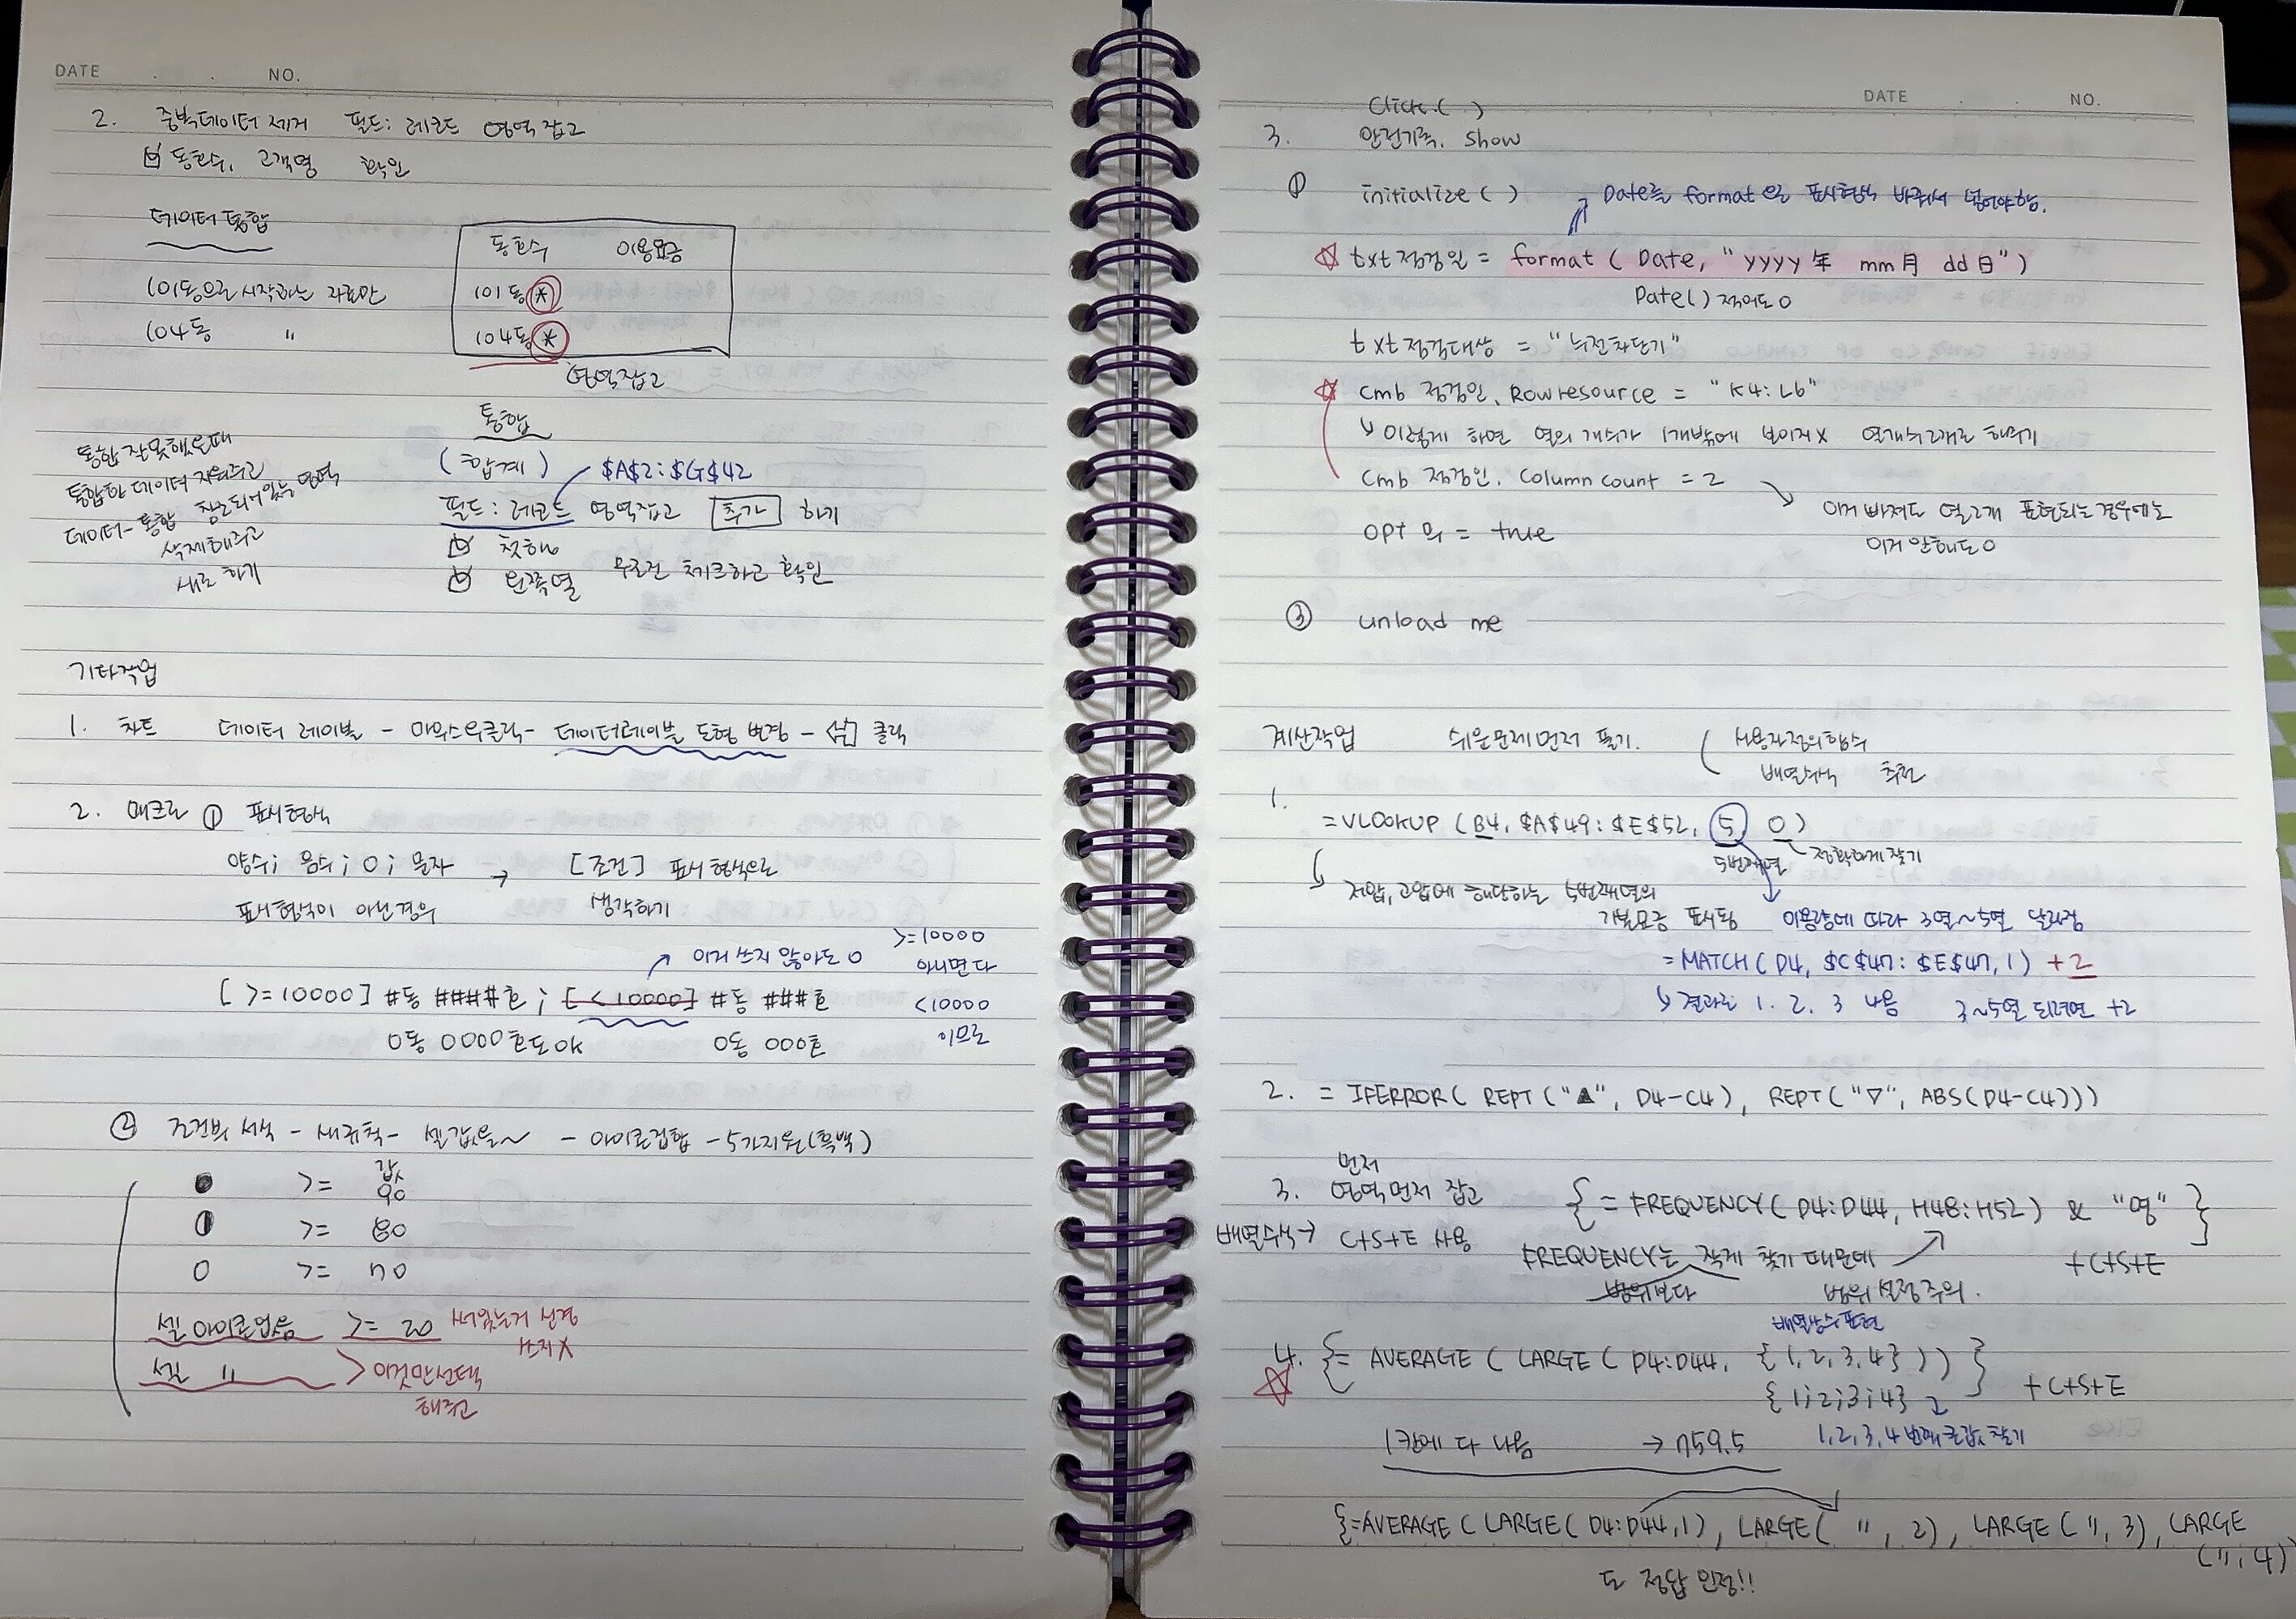 DATE . . NO.
2. 중복데이터 제거 필드: 레코드 영역 잡고
☑ 동호수, 고객명 확인
데이터 통합
101동으로 시작하는 자료만
104동 〃
동호수 이용요금
101동*
104동*
영역잡고
통합
(합계) $A$2:$G$42
필드: 레코드 영역잡고 추가 하기
☑ 첫행
☑ 왼쪽열 무조건 체크하고 확인
통합 잘못했을때
통합한 데이터 지워주고
데이터-통합 참조되어있는 영역
삭제해주고
새로 하기
기타작업
1. 차트 데이터 레이블 - 마우스우클릭 - 데이터레이블 도형 변경 - 클릭
2. 매크로 ① 표시형식
양수; 음수; 0; 문자 → [조건] 표시형식으로
표시형식이 아닌경우 생각하기
이거 쓰지 않아도 0
>=10000
아니면 다
<10000
이므로
[>=10000] #동 ####호; [<10000] #동 ###호
0동 0000호도 OK 0동 000호
② 조건부 서식 - 새규칙 - 셀값을~ - 아이콘집합 - 5가지원(흑백)
값
● >= 90
◐ >= 80
○ >= 70
셀 아이콘없음 >= 20 써있는거 신경쓰지 X
셀 〃 > 이것만선택
해주고
DATE . . NO.
Click( )
3. 안전기록. Show
① initialize( ) Date를 format으로 표시형식 바꿔서 넣어야함.
☆ txt점검일 = format ( Date, "yyyy年 mm月 dd日")
Date( ) 적어도 0
txt점검대상 = "누전차단기"
☆ cmb 점검인. Rowresource = "K4:L6"
↳ 이렇게 하면 열의 개수가 1개밖에 보이지 X 열개수 2개로 해주기
cmb 점검인. Column count = 2
이거 빠져도 열2개 표현되는 경우에는
이거 안해도 0
opt 외 = true
③ unload me
계산작업 쉬운문제먼저 풀기. ( 사용자정의함수
배열수식 추천
1. =VLOOKUP (B4, $A$49:$E$52, 5, 0)
5번째열 정확하게 찾기
저압, 고압에 해당하는 5번째열의
기본요금 표시됨 이용량에 따라 3열~5열 달라짐
=MATCH(D4, $C$47:$E$47, 1) +2
↳ 결과로 1, 2, 3 나옴 3~5열 되려면 +2
2. = IFERROR( REPT("▲", D4-C4), REPT("▽", ABS(D4-C4)))
먼저
3. 영역먼저 잡고 {= FREQUENCY( D4:D44, H48:H52) & "명" }
배열수식 → C+S+E 사용 +C+S+E
FREQUENCY는 작게 찾기 때문에
범위보다 범위 설정 주의.
배열상수표현
4. {= AVERAGE ( LARGE ( D4:D44, {1,2,3,4} )) } +C+S+E
☆ {1;2;3;4}
1칸에 다 나옴 → 759.5 1,2,3,4 번째 큰값 찾기
{=AVERAGE ( LARGE( D4:D44,1), LARGE( 〃 , 2), LARGE( 〃, 3), LARGE
(〃, 4))
도 정답 인정!!